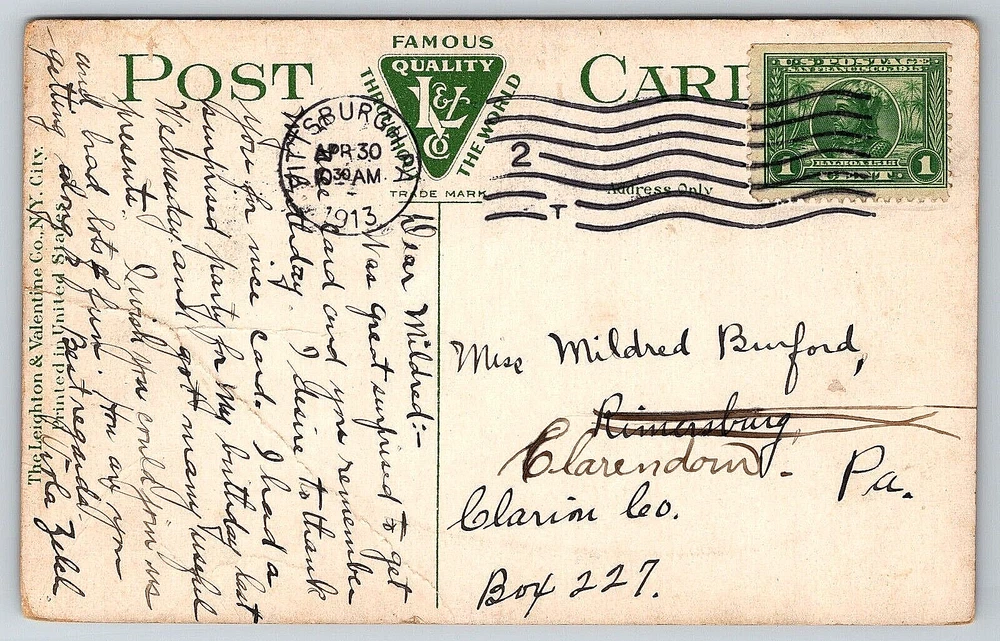 POST CARD
FAMOUS
THROUGHOUT
QUALITY
L&V
Co
THE WORLD
TRADE MARK
Address Only
PITTSBURGH
APR 30
10 30 AM
1913
PA
2
T
U.S. POSTAGE
SAN FRANCISCO 1915
BALBOA 1513
1 CENT 1
Dear Mildred:-
Was great surprised to get
the card and you remember
my birthday. I desire to thank
you for nice card. I had a
surprised party for my birthday last
Wednesday and got many useful
presents. I wish you could join us
and had lots of fun. How are you
getting along? Best regards.
Zelch
Miss Mildred Burford,
Rimersburg
Clarendon. Pa.
Clarion Co.
Box 227.
The Leighton & Valentine Co., N.Y. City.
Printed in United States.